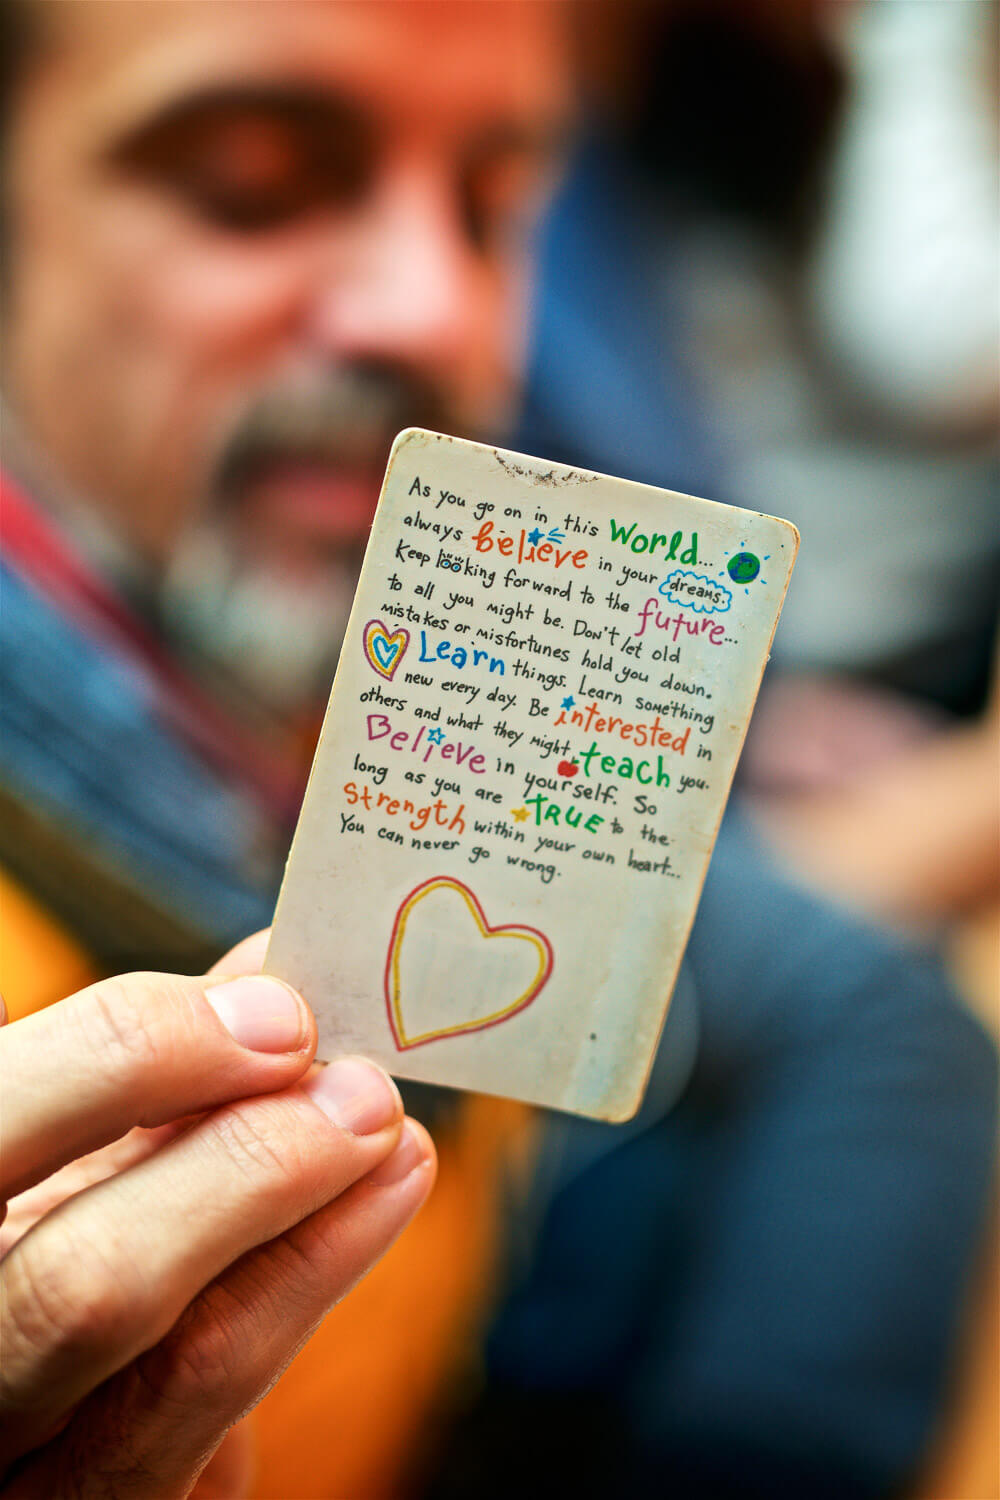 As you go on in this World...
always believe in your dreams.
Keep looking forward to the future...
to all you might be. Don't let old
mistakes or misfortunes hold you down.
Learn things. Learn something
new every day. Be interested in
others and what they might teach you.
Believe in yourself. So
long as you are TRUE to the
Strength within your own heart...
You can never go wrong.